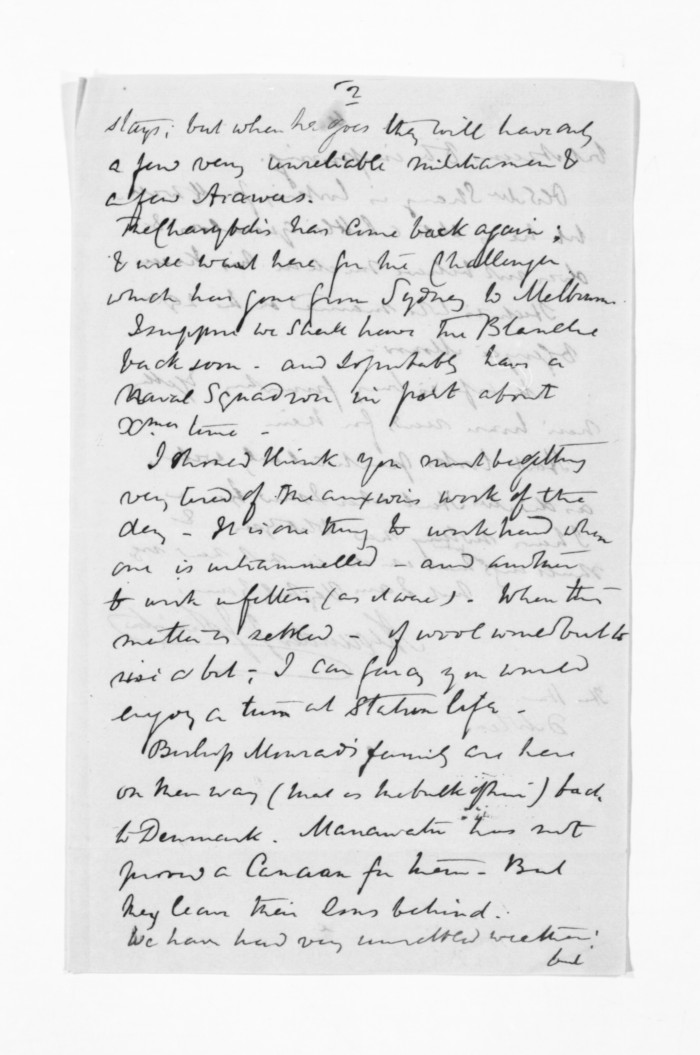 2
stays; but when he goes they will have only
a few very unreliable militiamen &
a few Arawas.
The Charybdis has come back again;
& will wait here for the Challenger,
which has gone from Sydney to Melbourne.
I suppose we shall have the Blanche
back soon - and so probably have a
Naval Squadron in port about
Xmas time -
I should think you must be getting
very tired of the anxious work of the
day - It is one thing to work hard when
one is untrammelled - and another
to work in fetters (as it were). When this
matter is settled - if wool would but to
rise a bit -; I can fancy you would
enjoy a turn at Station life -
Bishop Monrad's family are here
on their way (that is the bulk of them) back
to Denmark. Manawatu has not
proved a Canaan for them - But
they leave their sons behind.
We have had very unsettled weather;
but